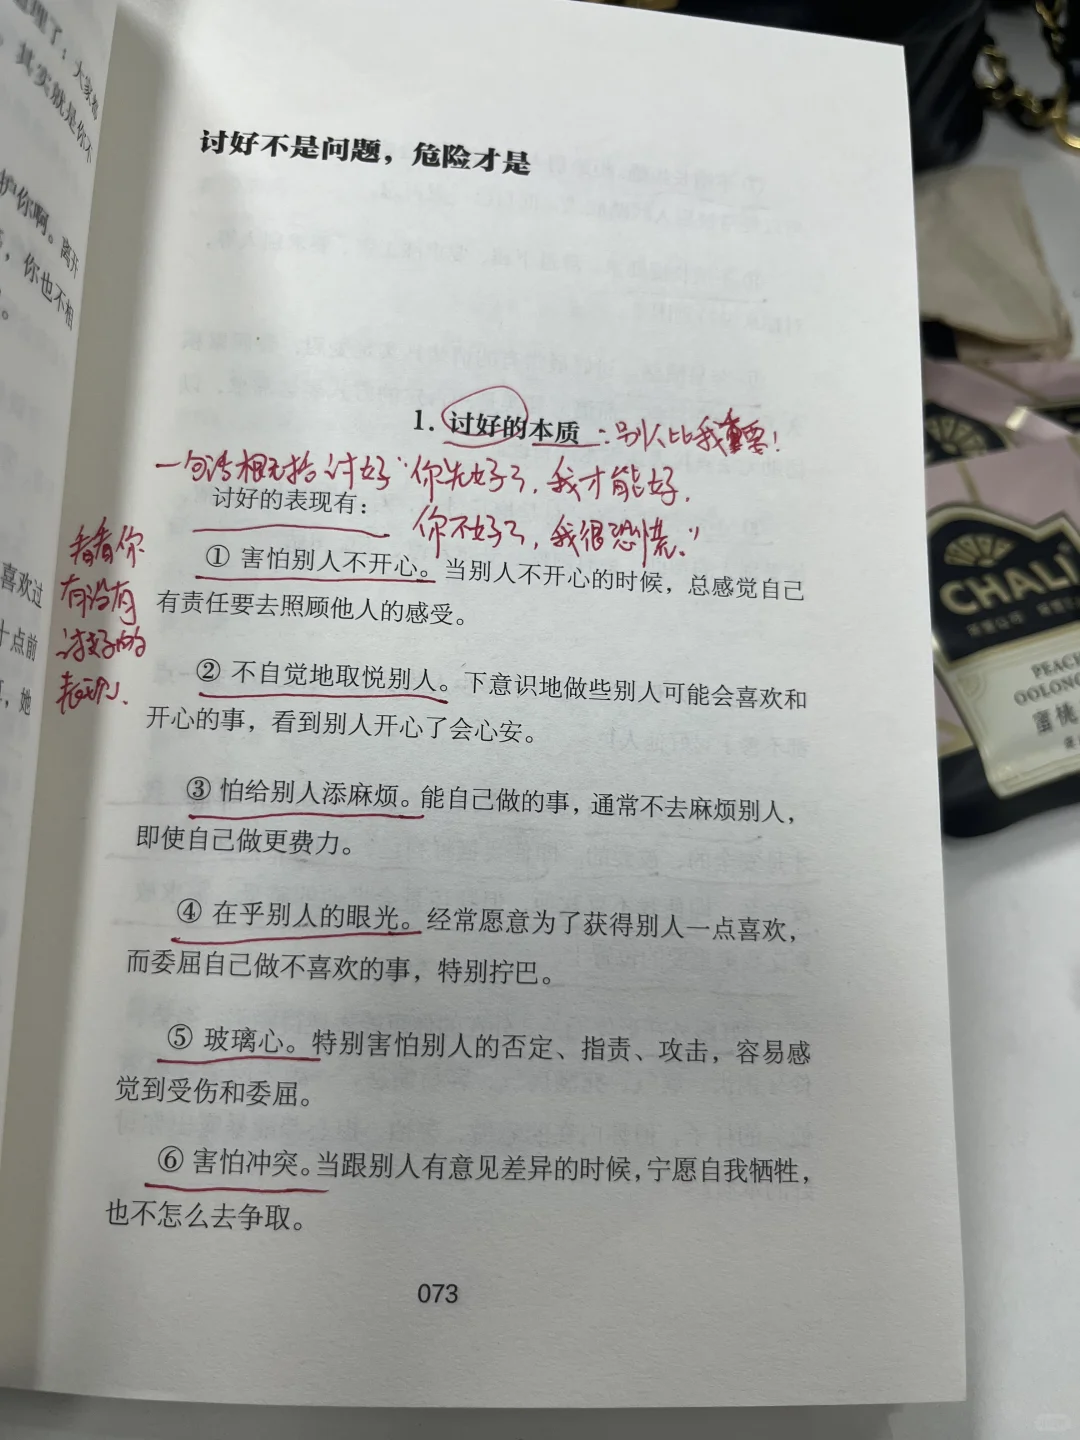 道理了：大家都
，其实就是你不
护你啊。离开
，你也不相
。
喜欢过
十点前
，她
讨好不是问题，危险才是
1. 讨好的本质：别人比我重要！
一句话概括讨好“你先好了，我才能好，
讨好的表现有：
你不好了，我很恐慌。”
看看你
有没有
讨好的
表现、
① 害怕别人不开心。当别人不开心的时候，总感觉自己
有责任要去照顾他人的感受。
② 不自觉地取悦别人。下意识地做些别人可能会喜欢和
开心的事，看到别人开心了会心安。
③ 怕给别人添麻烦。能自己做的事，通常不去麻烦别人，
即使自己做更费力。
④ 在乎别人的眼光。经常愿意为了获得别人一点喜欢，
而委屈自己做不喜欢的事，特别拧巴。
⑤ 玻璃心。特别害怕别人的否定、指责、攻击，容易感
觉到受伤和委屈。
⑥ 害怕冲突。当跟别人有意见差异的时候，宁愿自我牺牲，
也不怎么去争取。
073
CHALI
PEACH
OOLONG
蜜桃